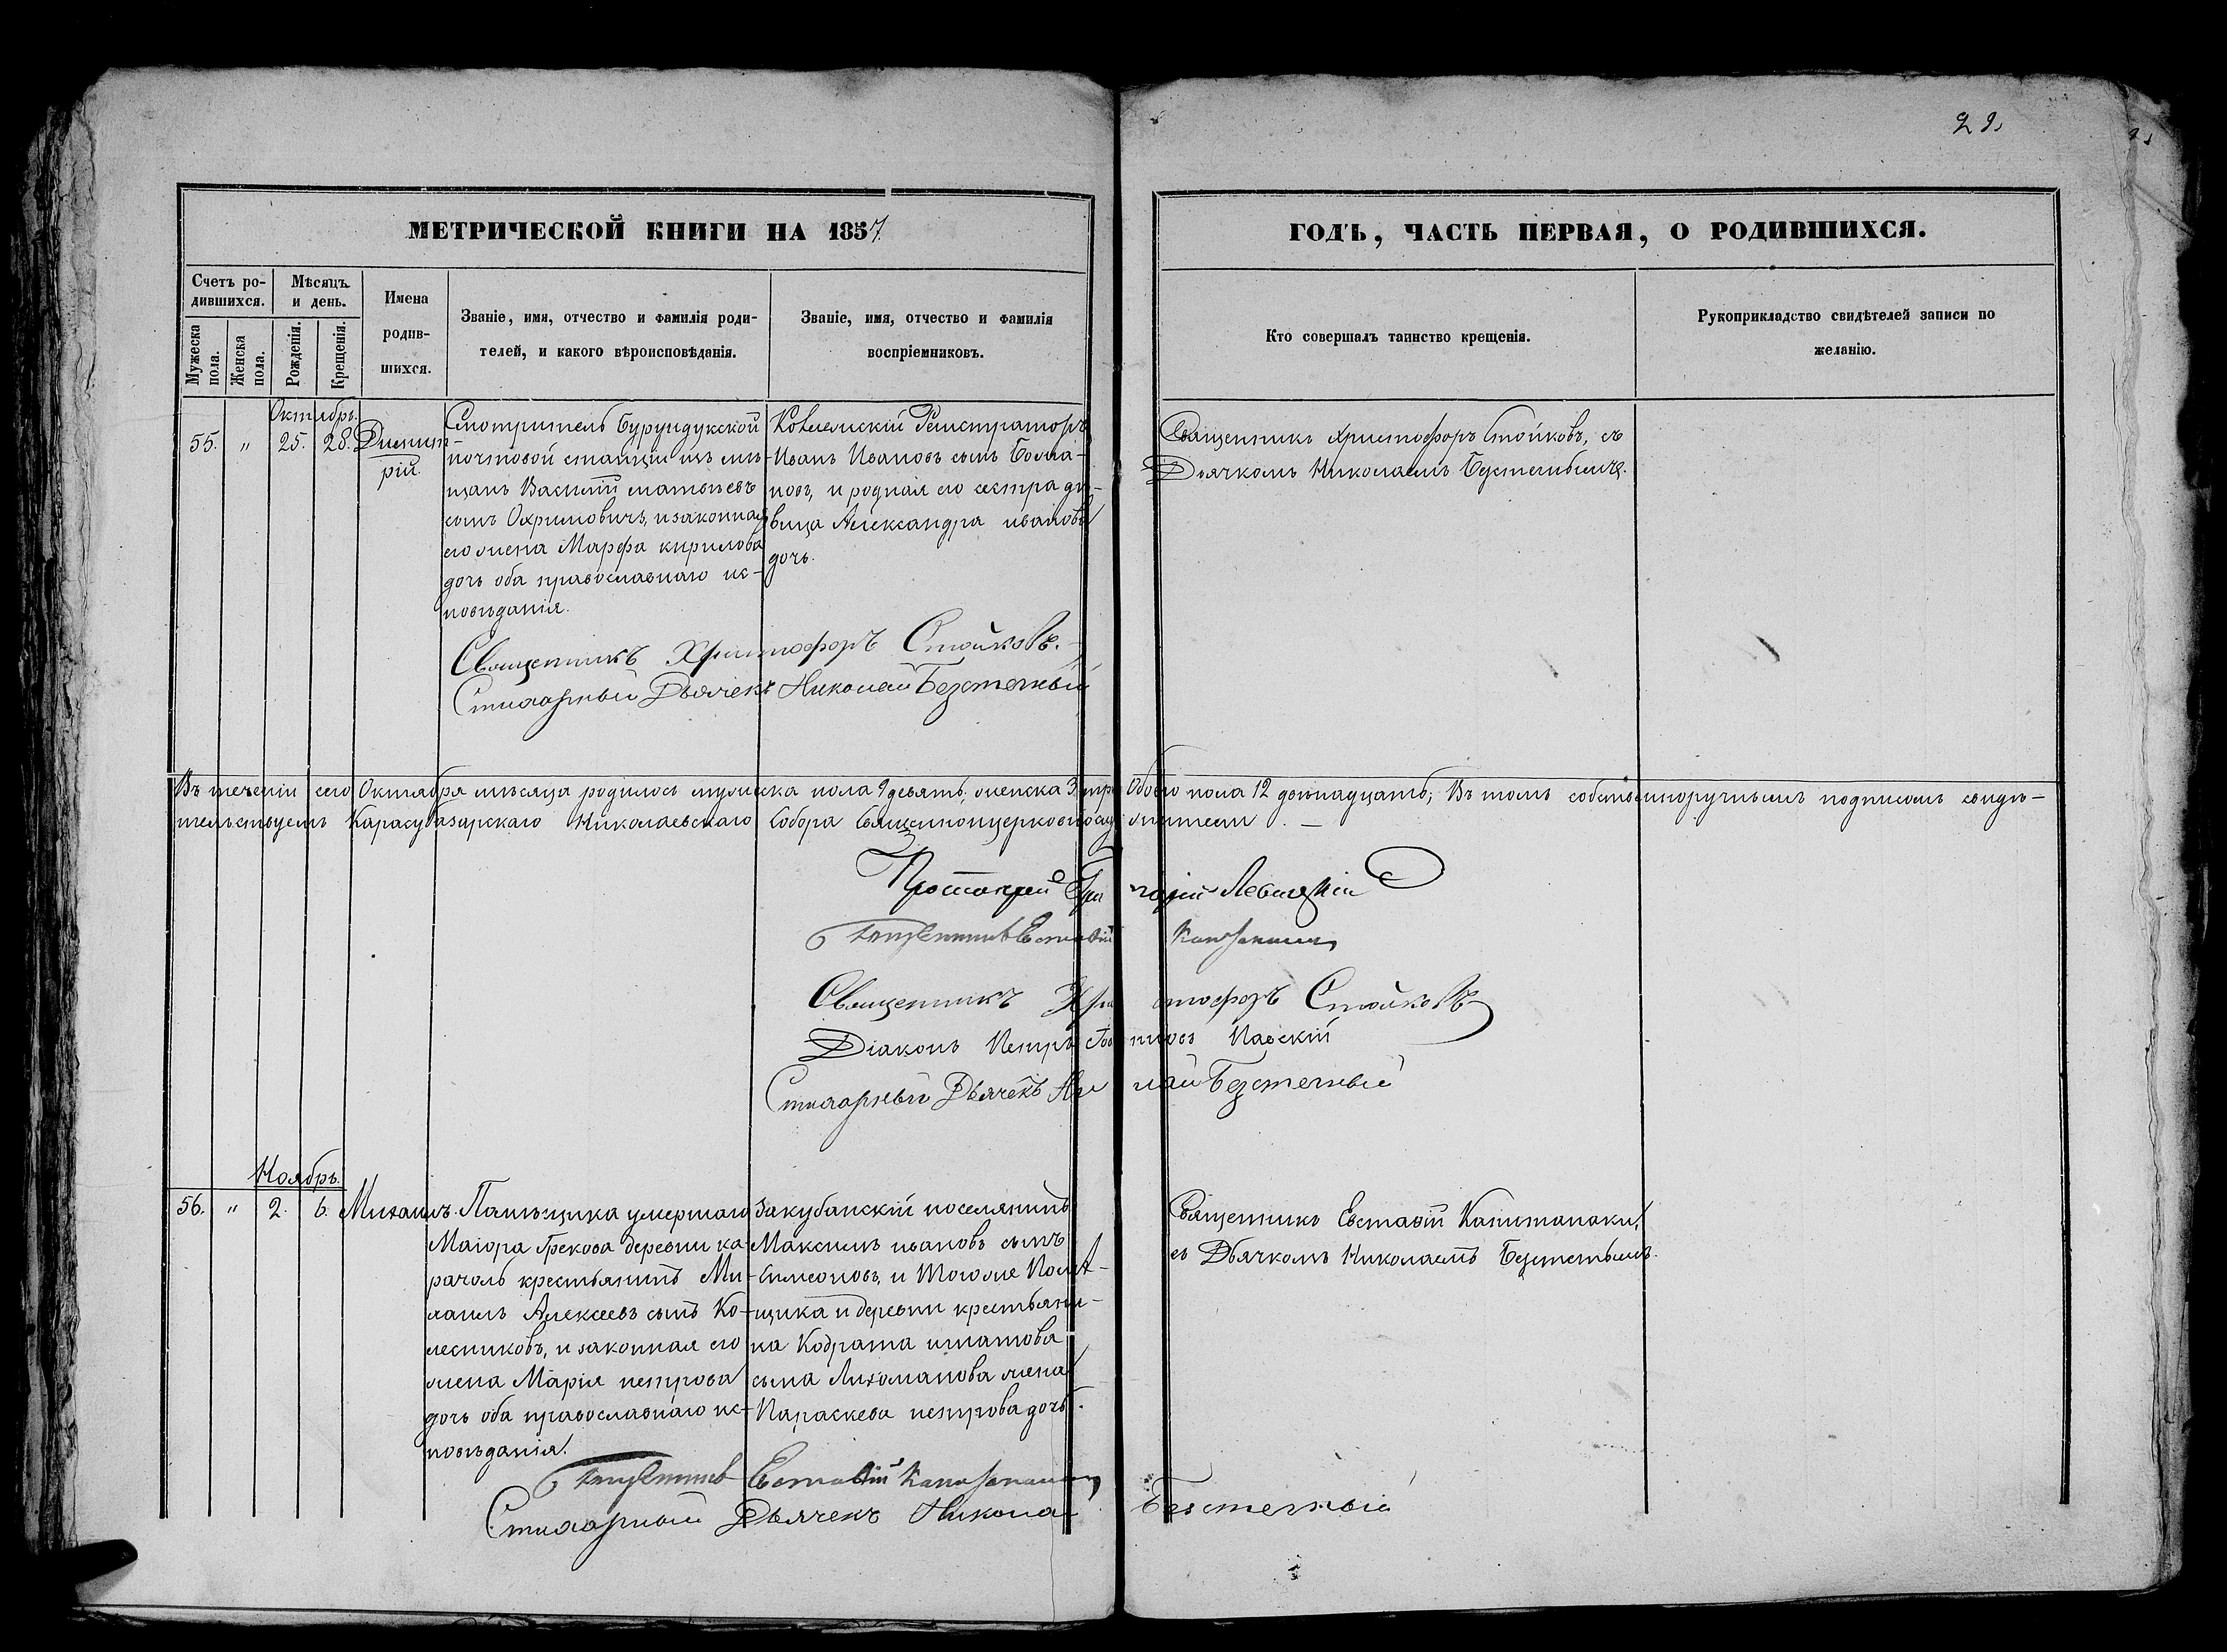 29.
МЕТРИЧЕСКОЙ КНИГИ НА 1857.
ГОДЪ, ЧАСТЬ ПЕРВАЯ, О РОДИВШИХСЯ.
Счетъ ро-
дившихся.
Мужеска пола.
Женска пола.
Мѣсяцъ
и день.
Рожденія.
Крещенія.
Имена
родив-
шихся.
Званіе, имя, отчество и фамилія роди-
телей, и какого вѣроисповѣданія.
Званіе, имя, отчество и фамилія
воспріемниковъ.
Кто совершалъ таинство крещенія.
Рукоприкладство свидѣтелей записи по
желанію.
Октябрь.
55. " 25. 28. Димит-
рій.
Смотритель Бурундукской
почтовой станціи изъ мѣ-
щанъ Василій матвѣевъ
сынъ Охримовичъ, и законная
его жена Марфа кирилова
дочь оба православнаго ис-
повѣданія.
Колежскій Регистраторъ
Иванъ Ивановъ сынъ
и родная его сестра дѣ-
вица Александра иванова
дочь.
Священникъ Христофоръ Стойковъ, съ
Дьячкомъ Николаемъ
Священникъ Христофоръ Стойковъ.
Стихарный Дьячекъ Николай Безстечный
Въ теченіи сего Октября мѣсяца родилось мужеска пола 9 девять, женска 3 три Обоего пола 12 двѣнадцать; Въ томъ собственноручнымъ подписомъ свидѣ-
тельствуемъ Карасубазарскаго Николаевскаго Собора Священноцерковнослужители. —
Протоіерей Григорій Левицкій
Священникъ Евставій
Священникъ Христофоръ Стойковъ
Діаконъ Петръ Павскій
Стихарный Дьячекъ Николай Безстечный
Ноябрь.
56. " 2. 6. Михаилъ.
Помѣщика умершаго
Маіора Грекова деревни ка-
рачоль крестьянинъ Ми-
хаилъ Алексеевъ сынъ Ко-
лесниковъ, и законная его
жена Марія петрова
дочь оба православнаго ис-
повѣданія.
Закубанскій поселянинъ
Максимъ ивановъ сынъ
Симеоновъ, и Тогоже Помѣ-
щика и деревни крестьяни-
на Кодрата игнатова
сына Лихоманова жена
Параскева петрова дочь.
Священникъ Евставій Капитанаки,
съ Дьячкомъ Николаемъ
Священникъ Евставій
Стихарный Дьячекъ Николай Безстечный